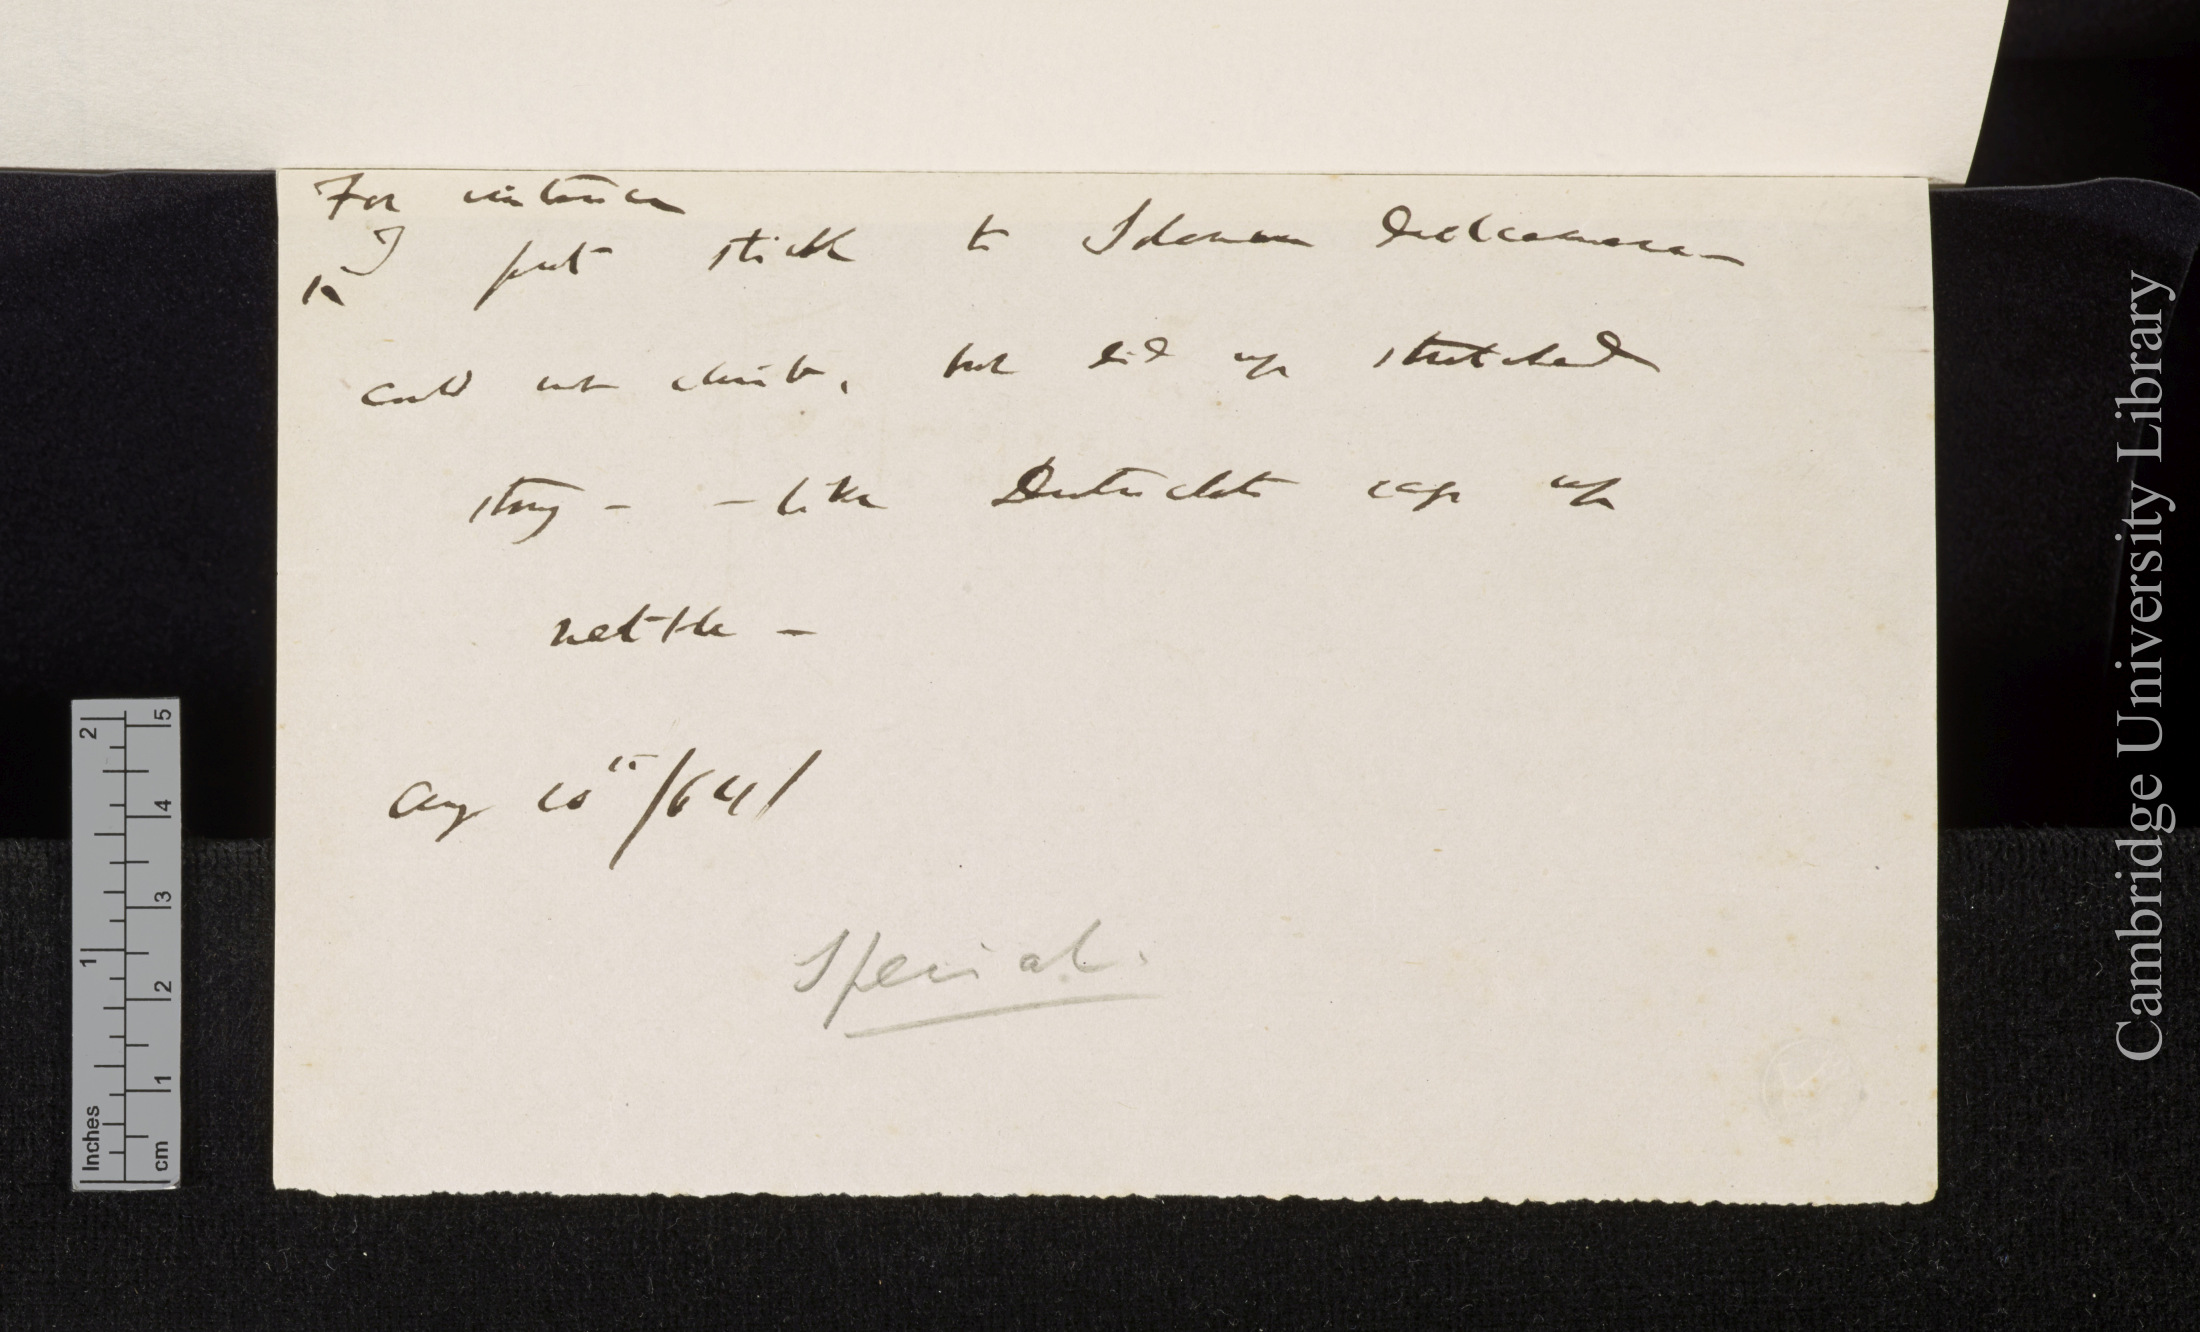 For instance
I put stick to Solanum Dulcamara —
could not climb, but did up stretched
string — — like up
nettle —
Aug 10th/64/
Special.
Cambridge University Library
Inches 1 2
cm 1 2 3 4 5